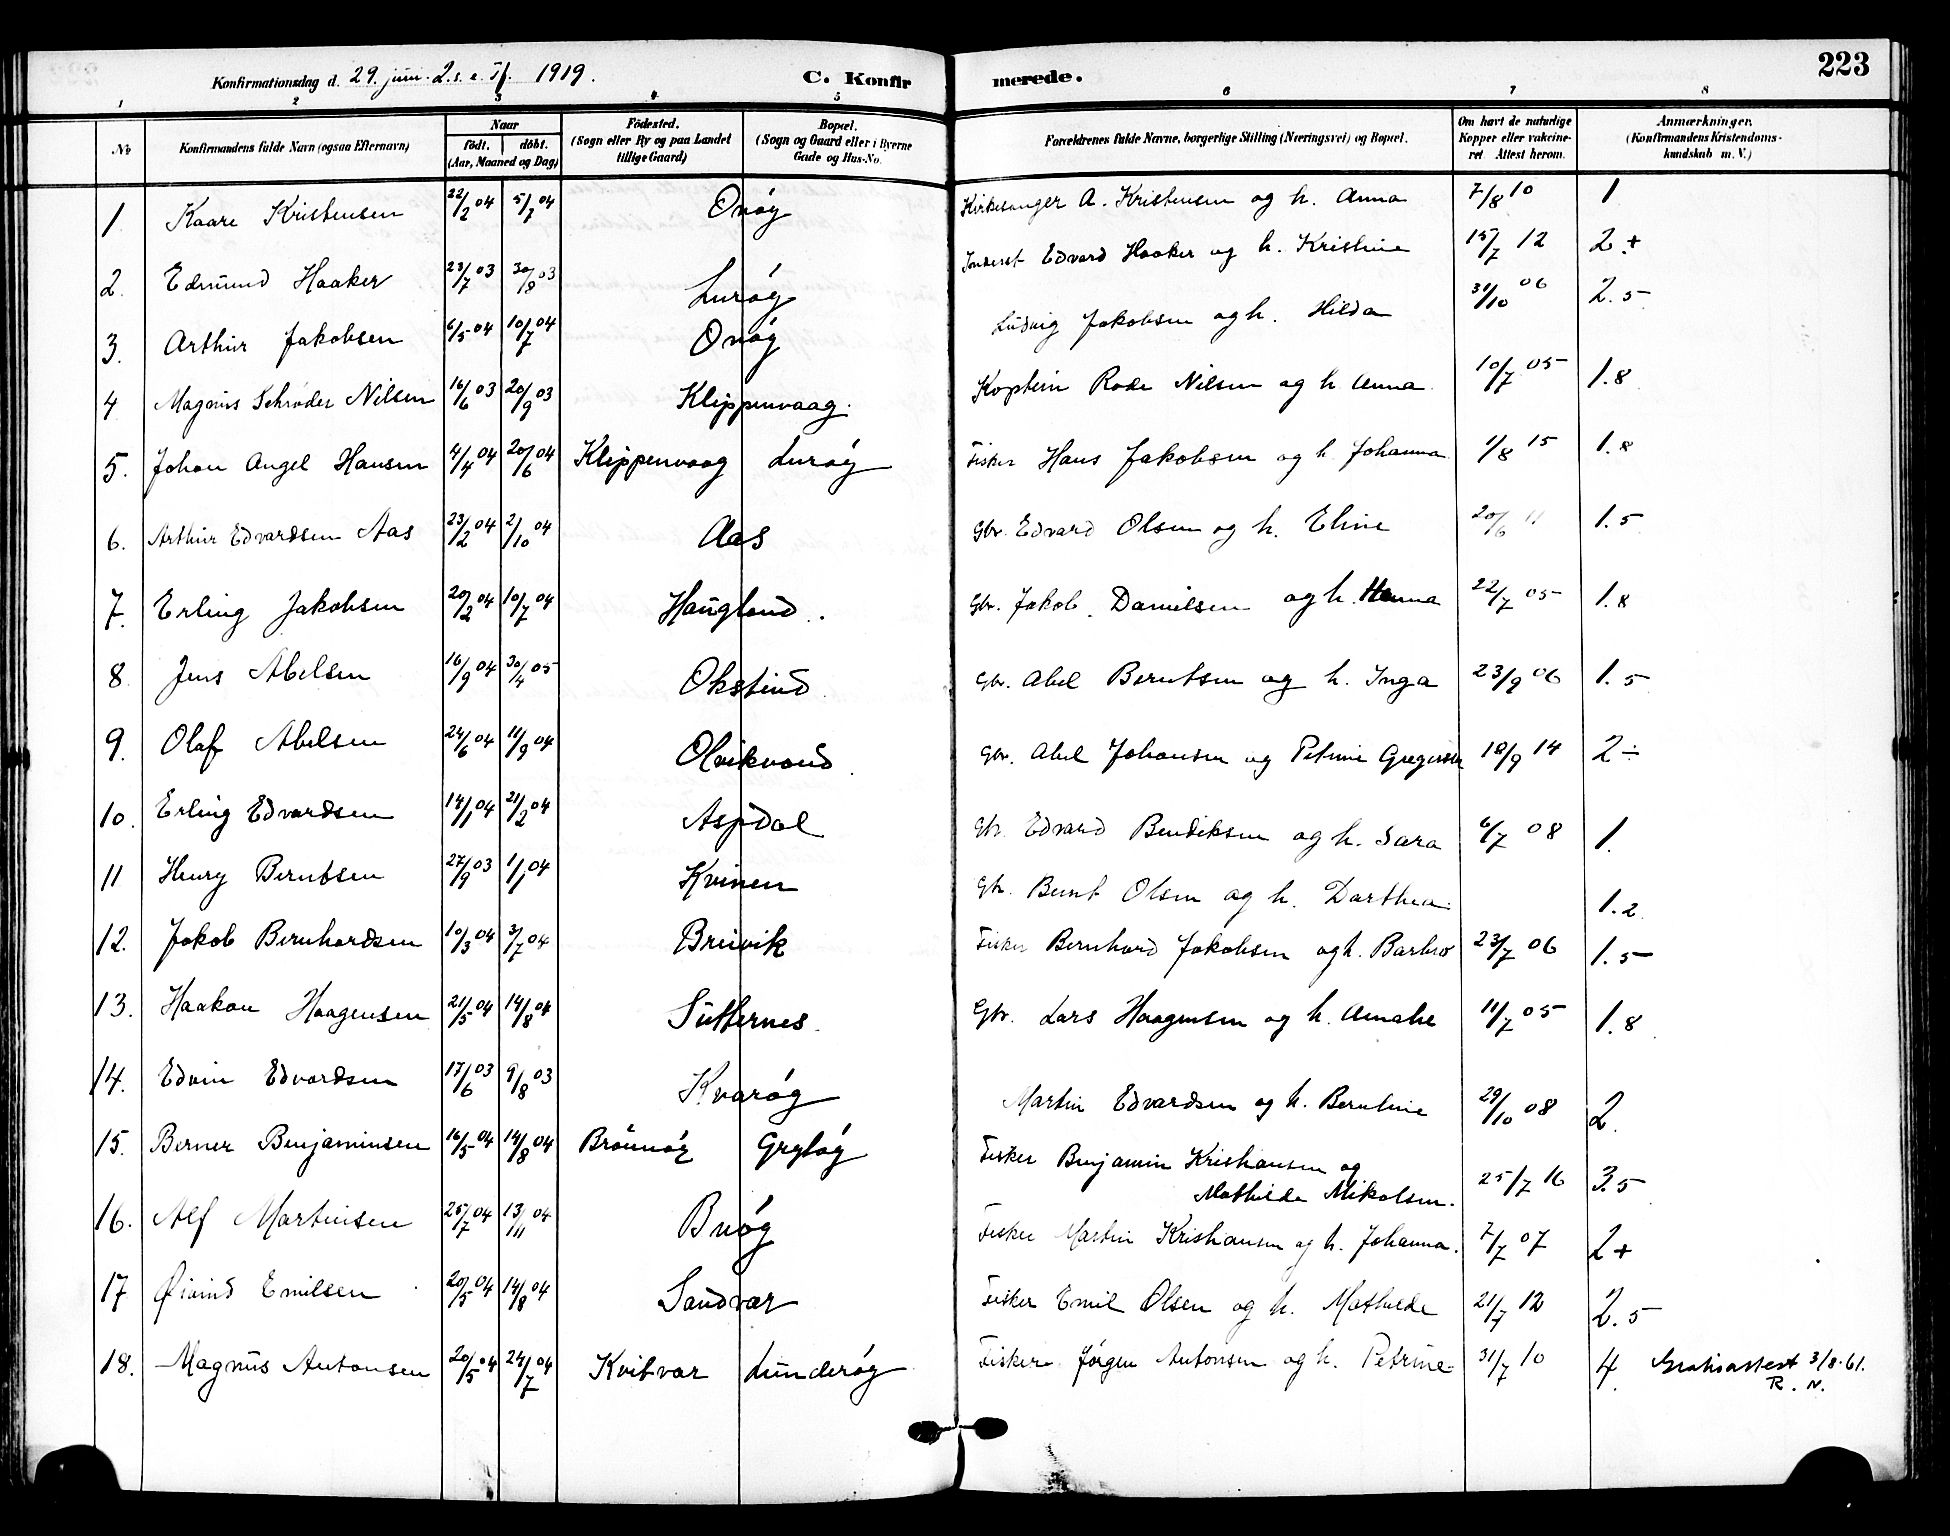 Konfirmationsdag d. 29. juni. 2. s. e. Tf. 1919. C. Konfirmerede. 223
1 2 3 4 5 6 7 8
No
Konfirmandens fulde Navn (ogsaa Efternavn)
Naar
født. døbt.
(Aar, Maaned og Dag)
Fødested.
(Sogn eller By og paa Landet
tillige Gaard)
Bopæl.
(Sogn og Gaard eller i Byerne
Gade og Hus-No.
Forældrenes fulde Navne, borgerlige Stilling (Næringsvei) og Bopæl.
Om havt de naturlige
Kopper eller vakcine-
ret Attest herom.
Anmærkninger.
(Konfirmandens Kristendoms-
kundskab m. V.)
1 Kaare Kristensen 22/2 04 5/7 04 Onøy Kirkesanger A. Kristensen og h. Anna 7/8 10 1
2. Edmund Haaker 23/7 03 30/8 03 Lurøy Edvard Haaker og h. Kristine 15/7 12 2 +
3. Arthur Jakobsen 6/5 04 10/7 04 Onøy Ludvig Jakobsen og h. Hilda 31/10 06 2.5
4 Magnus Schrøder Nilsen 16/6 03 20/9 03 Klippenvaag. Koptein Rode Nilsen og h Anna 10/7 05 1.8
5. Johan Angel Hansen 4/4 04 20/6 04 Klippenvaag Lurøy Fisker Hans Jakobsen og h. Johanna 1/8 15 1.8
6. Arthur Edvardsen Aas 23/2 04 2/10 04 Aas Gbr. Edvard Olsen og h. Eline 20/6 11 1.5
7. Erling Jakobsen 20/2 04 10/7 04 Haugland. Gbr. Jakob Danielsen og h. Hanna 22/7 05 1.8
8 Jens Abelsen 16/9 04 30/4 05 Okstind Gbr. Abel Berntsen og h. Inga 23/9 06 1.5
9. Olaf Abelsen 24/6 04 11/9 04 Olvikvand Gbr. Abel Johansen og Petrine Gregersen 18/9 14 2 ÷
10. Erling Edvardsen 14/1 04 21/2 04 Aspdal Gbr. Edvard Bendiksen og h. Sara 6/7 08 1.
11 Henry Berntsen 27/9 03 1/1 04 Kvinen Gbr. Bernt Olsen og h. Darthea. 1.2
12. Jakob Bernhardsen 10/3 04 3/7 04 Breivik Fisker Bernhard Jakobsen og h. Barbro 23/7 06 1.5
13. Haakon Haagensen 21/5 04 14/8 04 Sütternes Gbr. Lars Haagensen og h. Amalie 11/7 05 1.8
14. Edvin Edvardsen 17/6 03 9/8 03 Kvarøy Martin Edvardsen og h. Berntine 29/10 08 2.
15. Berner Benjaminsen 16/5 04 14/8 04 Brønnøy Grytøy Fisker Benjamin Kristiansen og
Mathilde Mikalsen. 25/7 16 3.5
16. Alf Martinsen 25/7 04 13/11 04 Buøy Fisker Martin Kristiansen og h. Johanna. 7/7 07 2+
17 Øivind Emilsen 20/5 04 14/8 04 Sandvær Fisker Emil Olsen og h. Mathilde 21/7 12 2.5
18. Magnus Antonsen 20/5 04 24/7 04 Kvitvær Lunderøy Fisker Jørgen Antonsen og h. Petrine 31/7 10 4. Gratisattest 3/8-61.
R. N.